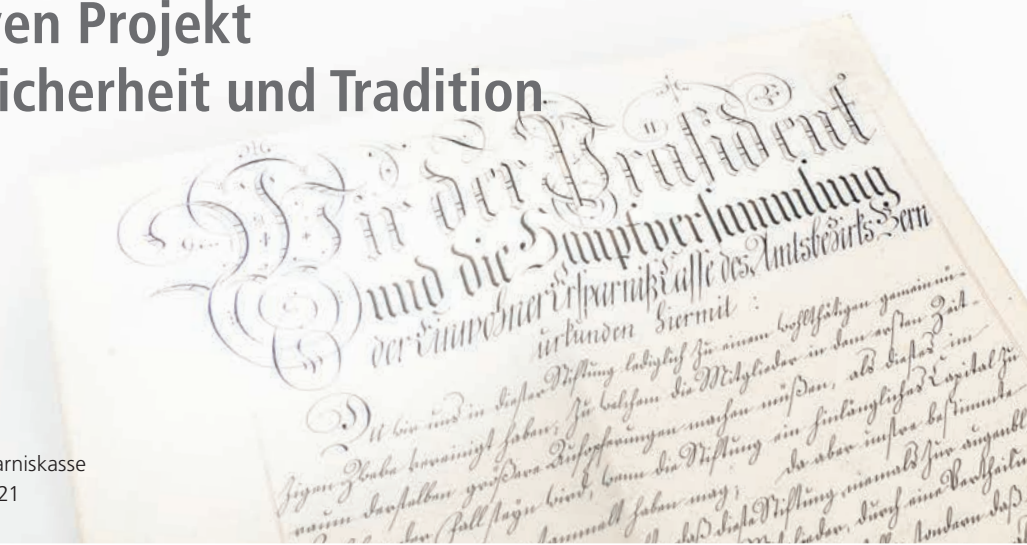 ven Projekt
icherheit und Tradition
Wir der Präsident
und die Hauptversammlung
der Einwohner Ersparniß Casse des Amtsbezirks Bern
urkunden hiermit :
Da wir uns in dieser Stiftung lediglich zu einem wohlthätigen gemeinnü-
zigen Zweke vereinigt haben, zu welchem die Mitglieder in dem ersten Zeit-
raum derselben größere Aufopferungen machen müßen, als dieses im
der Fall seyn wird, wann die Stiftung ein hinlängliches Capital zu
sammelt haben mag; da aber unsre bestimmte
daß diese Stiftung niemals zur augenbl
durch eine Vertheilu
sondern daß
arniskasse
21